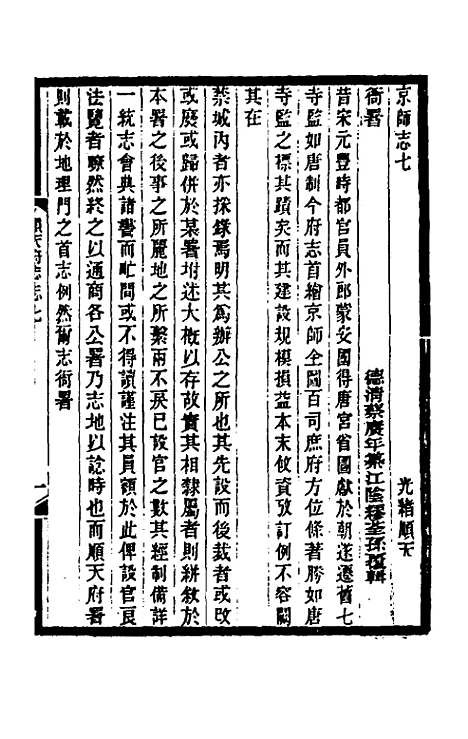 京師志七 光緒順天
衙署 德清蔡賡年纂江陰繆荃孫覆輯
昔宋元豐時都官員外郎蒙安國得唐宮省圖獻於朝遂遷舊七
寺監如唐制今府志首繪京師全圖百司庶府方位係著勝如唐
寺監之標其蹟矣而其建設規模損益本末攸資攷訂例不容闕
其在
禁城內者亦採錄焉明其爲辦公之所也其先設而後裁者或改
或廢或歸併於某署坿述大槪以存故實其相隸屬者則緐敘於
本署之後事之所麗地之所繫兩不戾已設官之數其經制備詳
一統志會典諸書而旷間或不得讀謹注其員額於此俾設官良
法覽者瞭然終之以通商各公署乃志地以諗時也而順天府署
則載於地理門之首志例然爾志衙署
順天府志志七
一